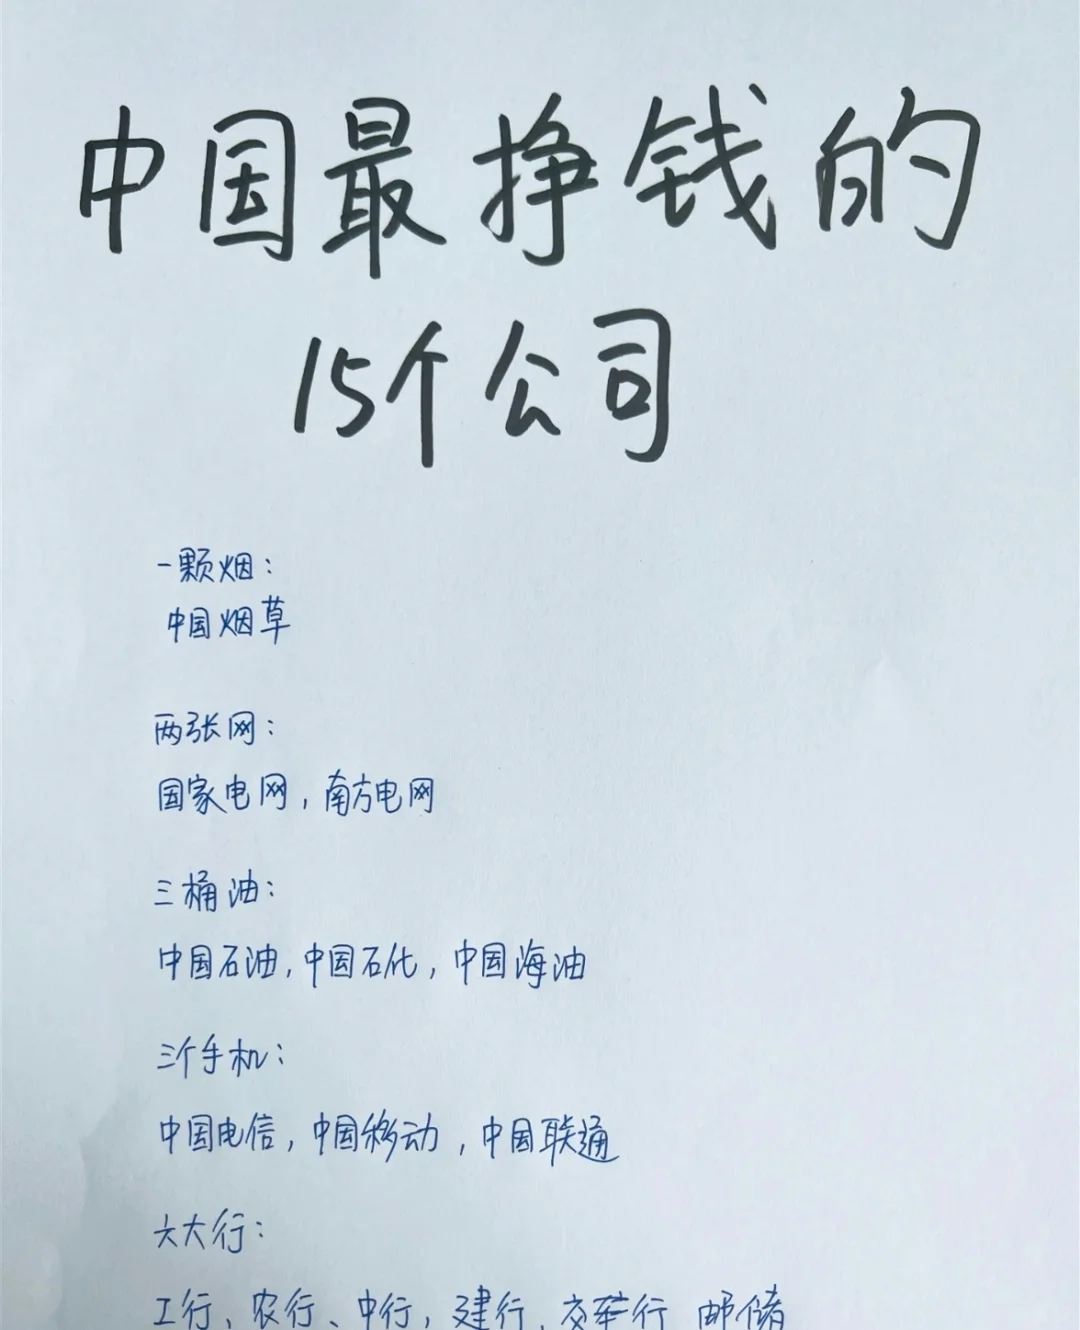 中国最挣钱的
15个公司
一颗烟：
中国烟草
两张网：
国家电网，南方电网
三桶油：
中国石油，中国石化，中国海油
三个手机：
中国电信，中国移动，中国联通
六大行：
工行、农行、中行，建行、交车行 邮储